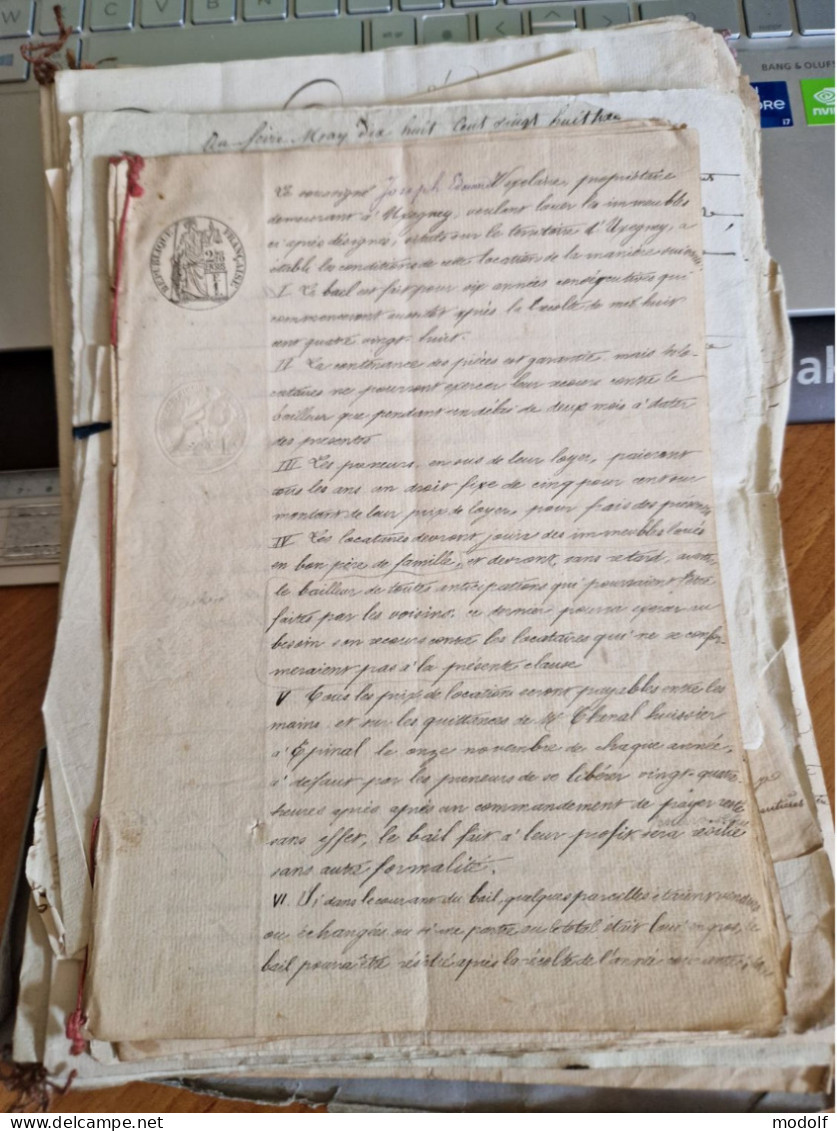 BANG & OLUFS
i7
Au foire May dix huit Cent vingt huit
Le soussigné Joseph propriétaire
demeurant à Uxegney, voulant louer les immeubles
ci après désignés, situés sur le territoire d'Uxegney, a
établi les conditions de cette location de la manière suivante
I. Le bail est fait pour six années consécutives qui
commenceront après la récolte de mil huit
cent quatre vingt huit.
II La contenance des pièces est garantie, mais les lo-
cataires ne pourront exercer leur recours contre le
bailleur que pendant un délai de deux mois à dater
des présentes
III Les preneurs, en sus de leur loyer, paieront
tous les ans un droit fixe de cinq pour cent sur
montant de leur prix de loyer, pour frais des présentes
IV. Les locataires devront jouir des immeubles loués
en bon père de famille, et devront, sans retard, avertir
le bailleur de toutes anticipations qui pourraient être
faites par les voisins, ce dernier pourra exercer au
besoin son recours contre les locataires qui ne se confor-
meraient pas à la présente clause
V Tous les prix de locations seront payables entre les
mains et sur les quittances de Mr Thenal huissier
à Epinal le onze novembre de chaque année,
à défaut par les preneurs de se libérer vingt-quatre
heures après après un commandement de payer resté
sans effet, le bail fait à leur profit sera résilié
sans autre formalité.
VI. Si dans le courant du bail, quelques parcelles étaient vendues
ou échangées ou si une partie ou le total était loué en gros, le
bail pourra être résilié après la récolte de l'année courante
RÉPUBLIQUE FRANÇAISE
modolf